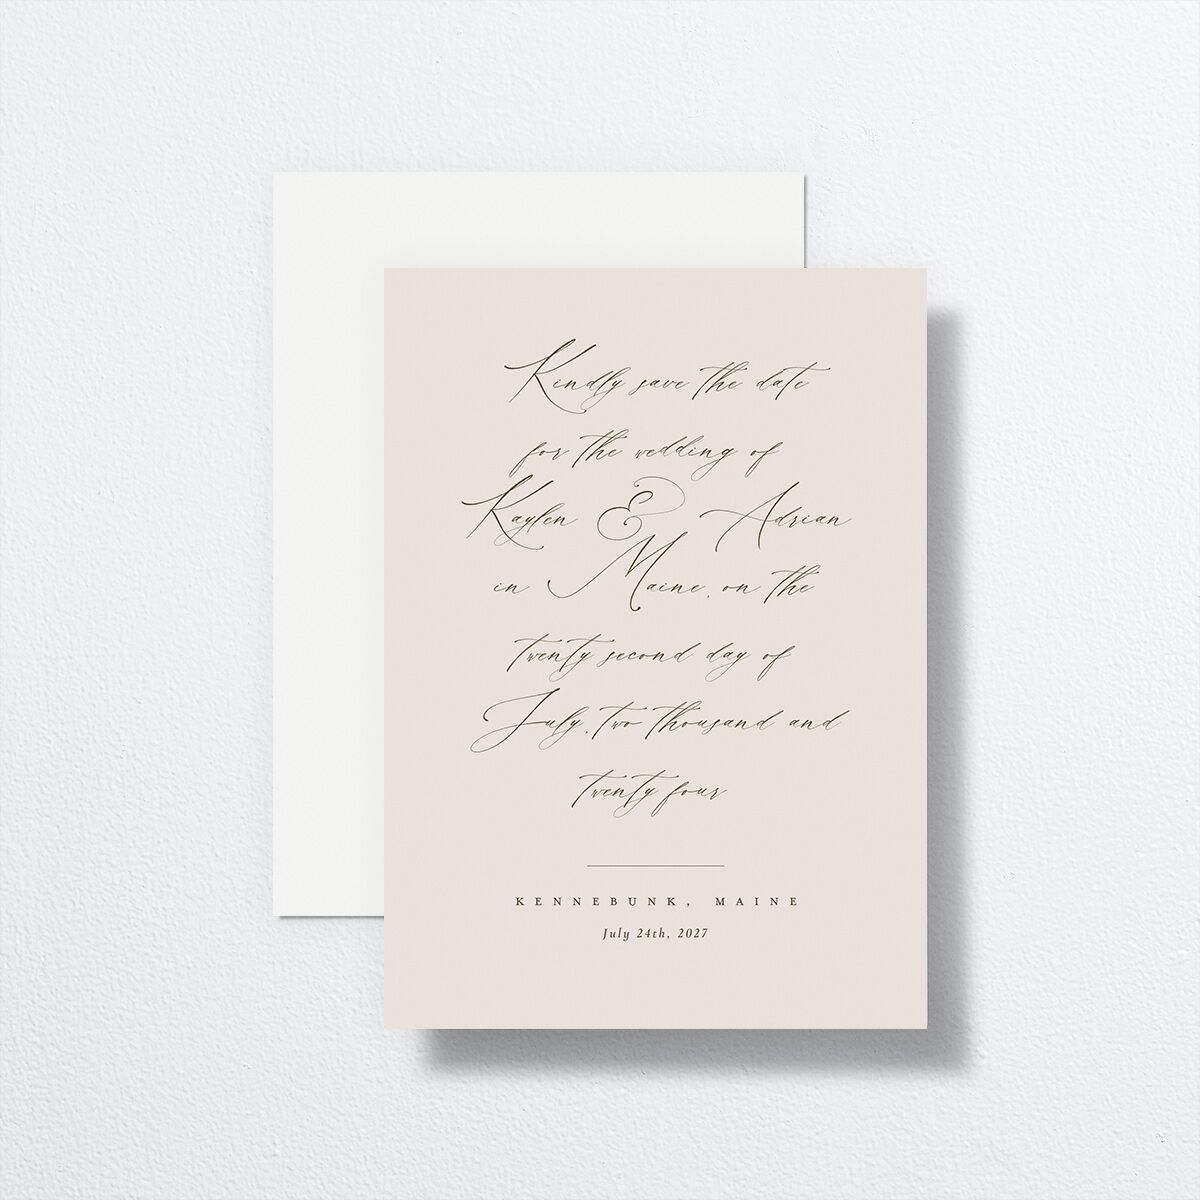 Kindly save the date
for the wedding of
Kaylen & Adrian
in Maine, on the
twenty second day of
July, two thousand and
twenty four
KENNEBUNK, MAINE
July 24th, 2027